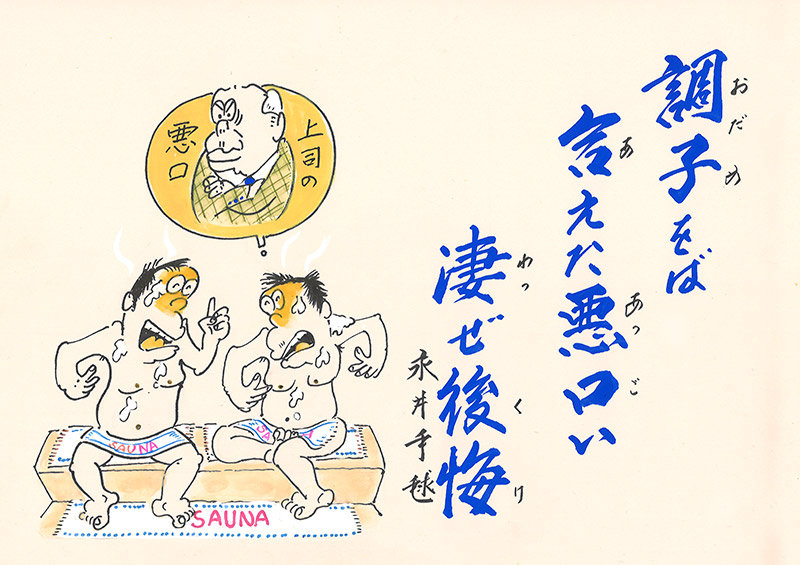 調子をば
おだめ
言えた悪口い
あ
あっご
凄ぜ後悔
わっ
く
け
永井手毬
上司の
悪口
SAUNA
SAUNA